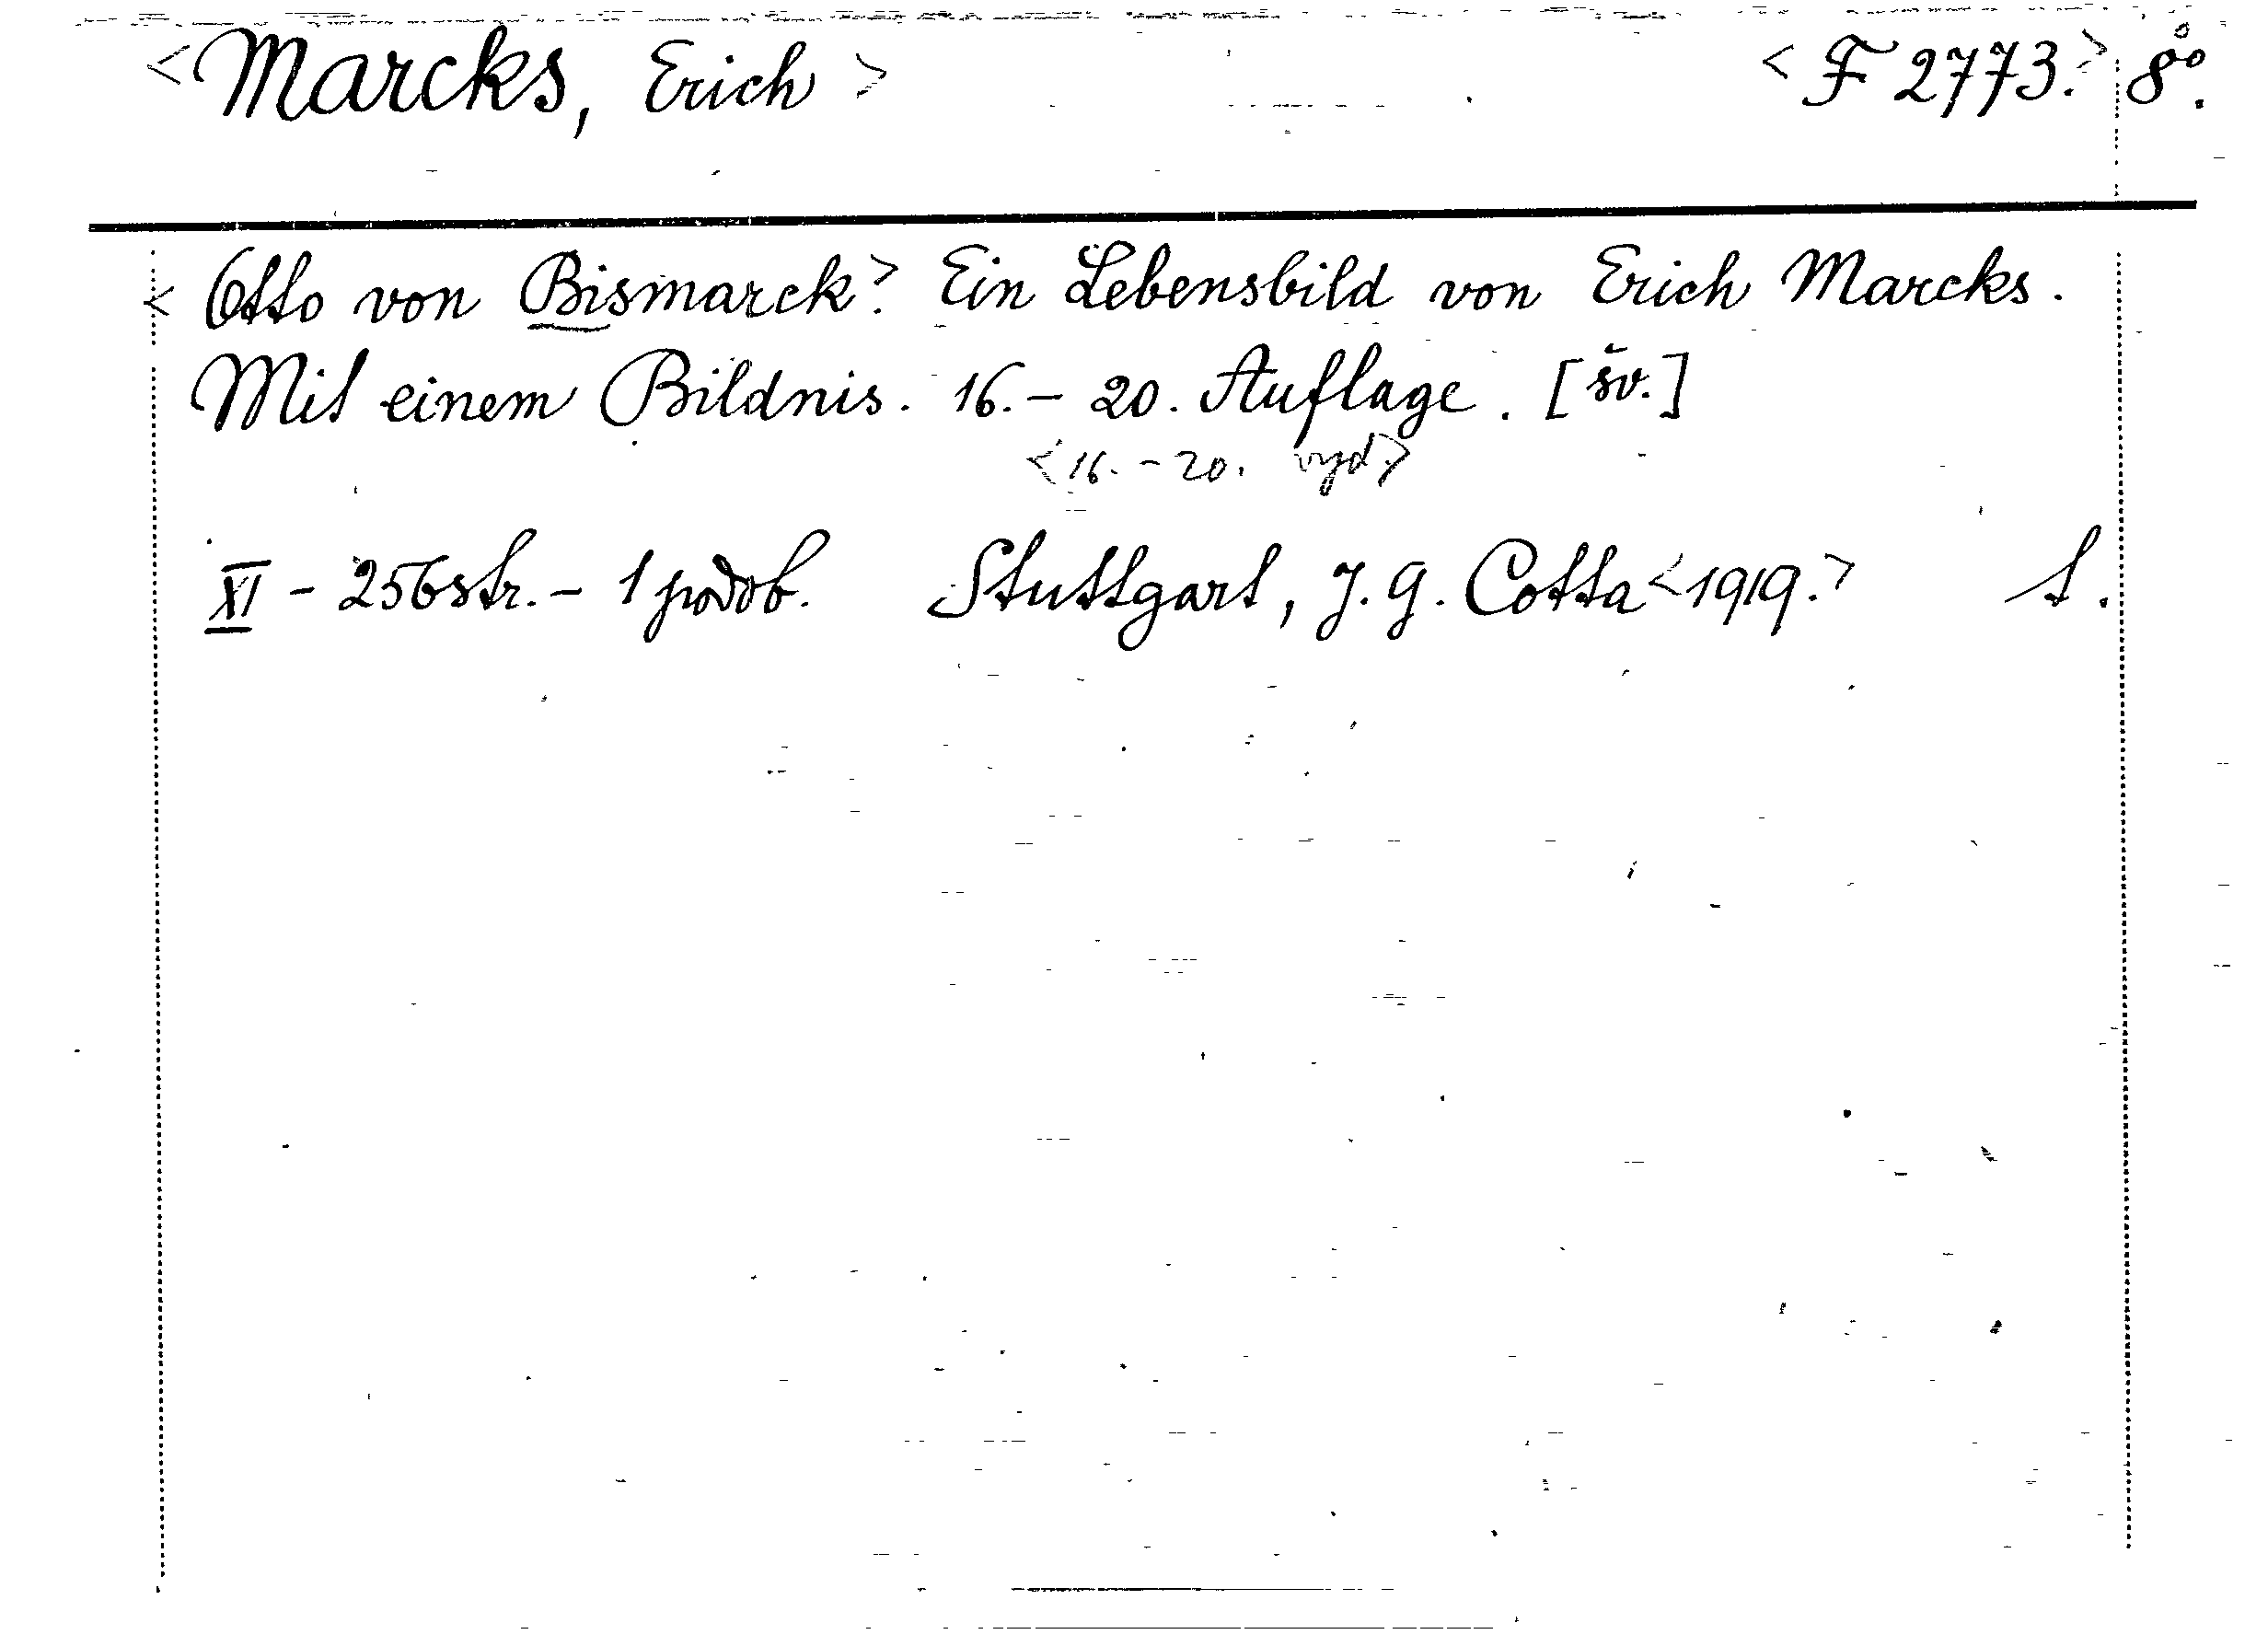 <Marcks, Erich> <F 2773.> 8°.
<Otto von Bismarck.> Ein Lebensbild von Erich Marcks.
Mit einem Bildnis. 16. – 20. Auflage. [šv.]
<16. – 20. vyd.>
XI – 256 str. – 1 podob. Stuttgart, J. G. Cotta <1919.>